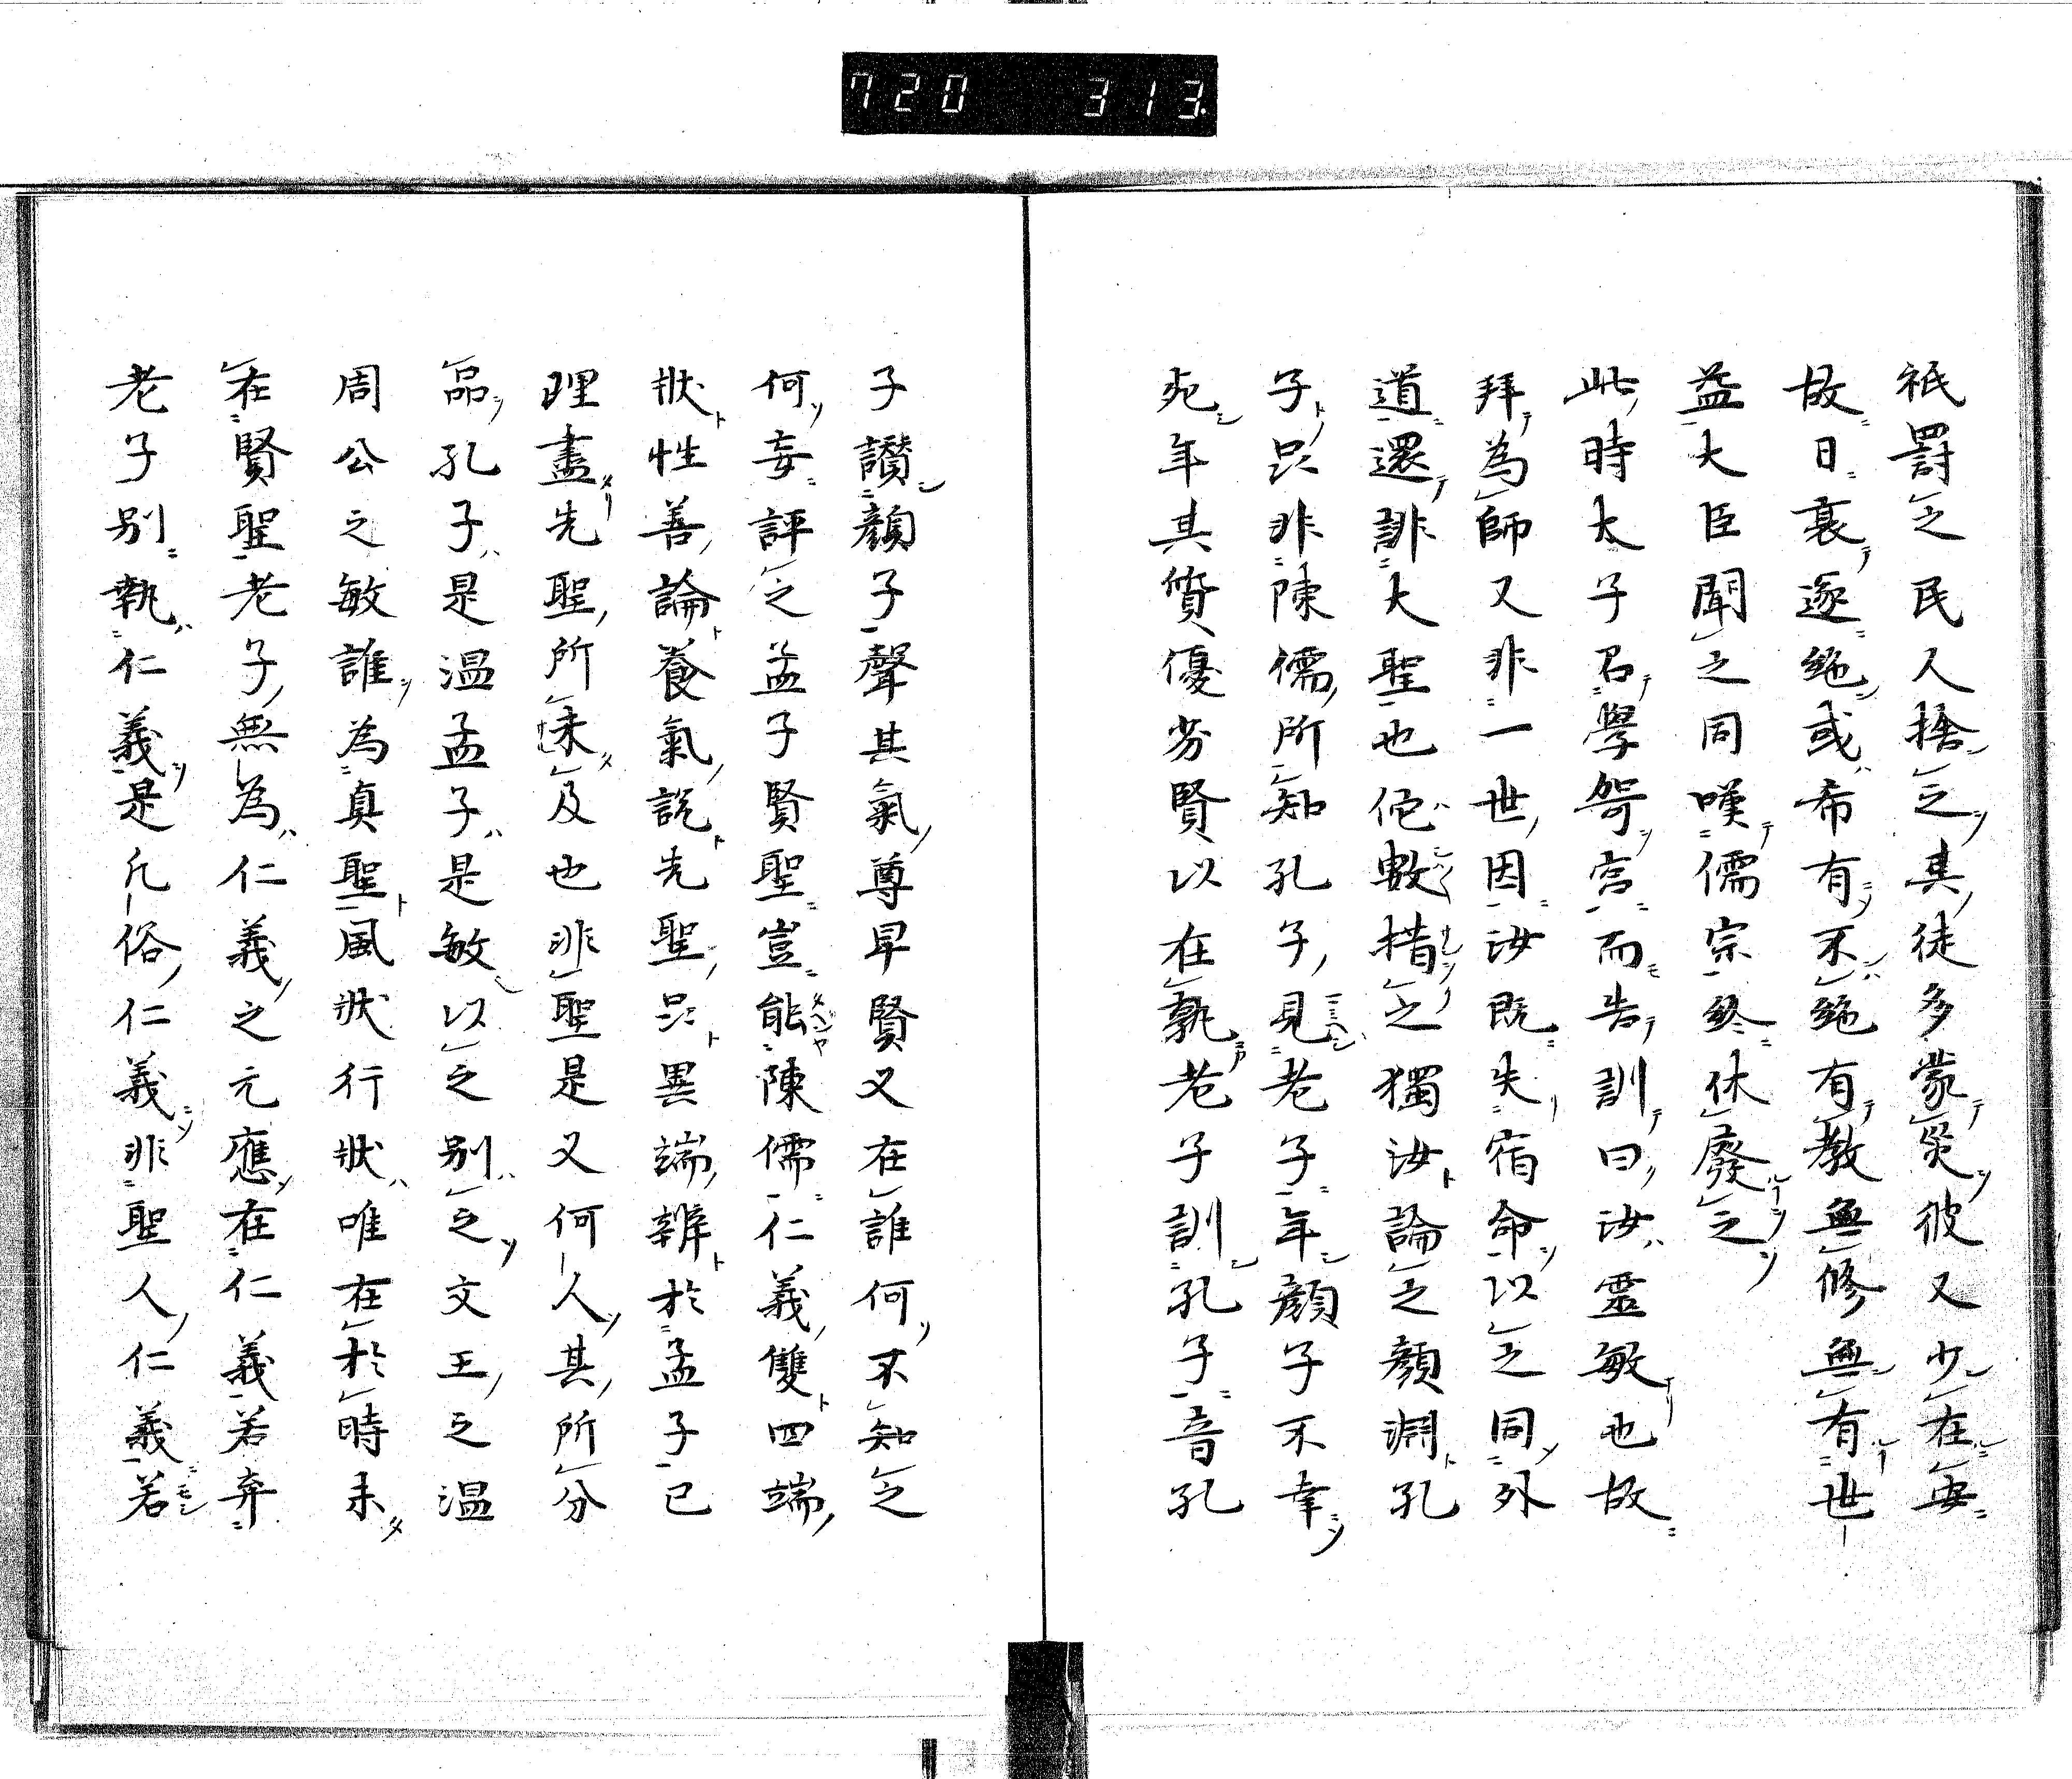 720 313
祇罸之民人捨之其徒多蒙災彼又少在毎
故日衰逐絶或希有不絶有教無修無有世
益大臣聞之同嘆儒宗終休廢之
此時太子召學哿宮而告訓曰汝靈敏也故
拜為師又非一世因汝既失宿命以之同外
道還誹大聖也佗數措之獨汝論之顔淵孔
子只非陳儒所知孔子見老子年顔子不幸
死年其質優劣賢以在孰老子訓孔子音孔
子讃顔子聲其氣尊早賢又在誰何不知之
何妄評之孟子賢聖豈能陳儒仁義雙四端
状性善論養氣説先聖只異端辨於孟子已
理盡先聖所未及也非聖是又何人其所分
品孔子是温孟子是敏以之別之文王之温
周公之敏誰為真聖風状行状唯在於時未
在賢聖老子無為仁義之元應在仁義若弃
老子别執仁義是凢俗仁義非聖人仁義若